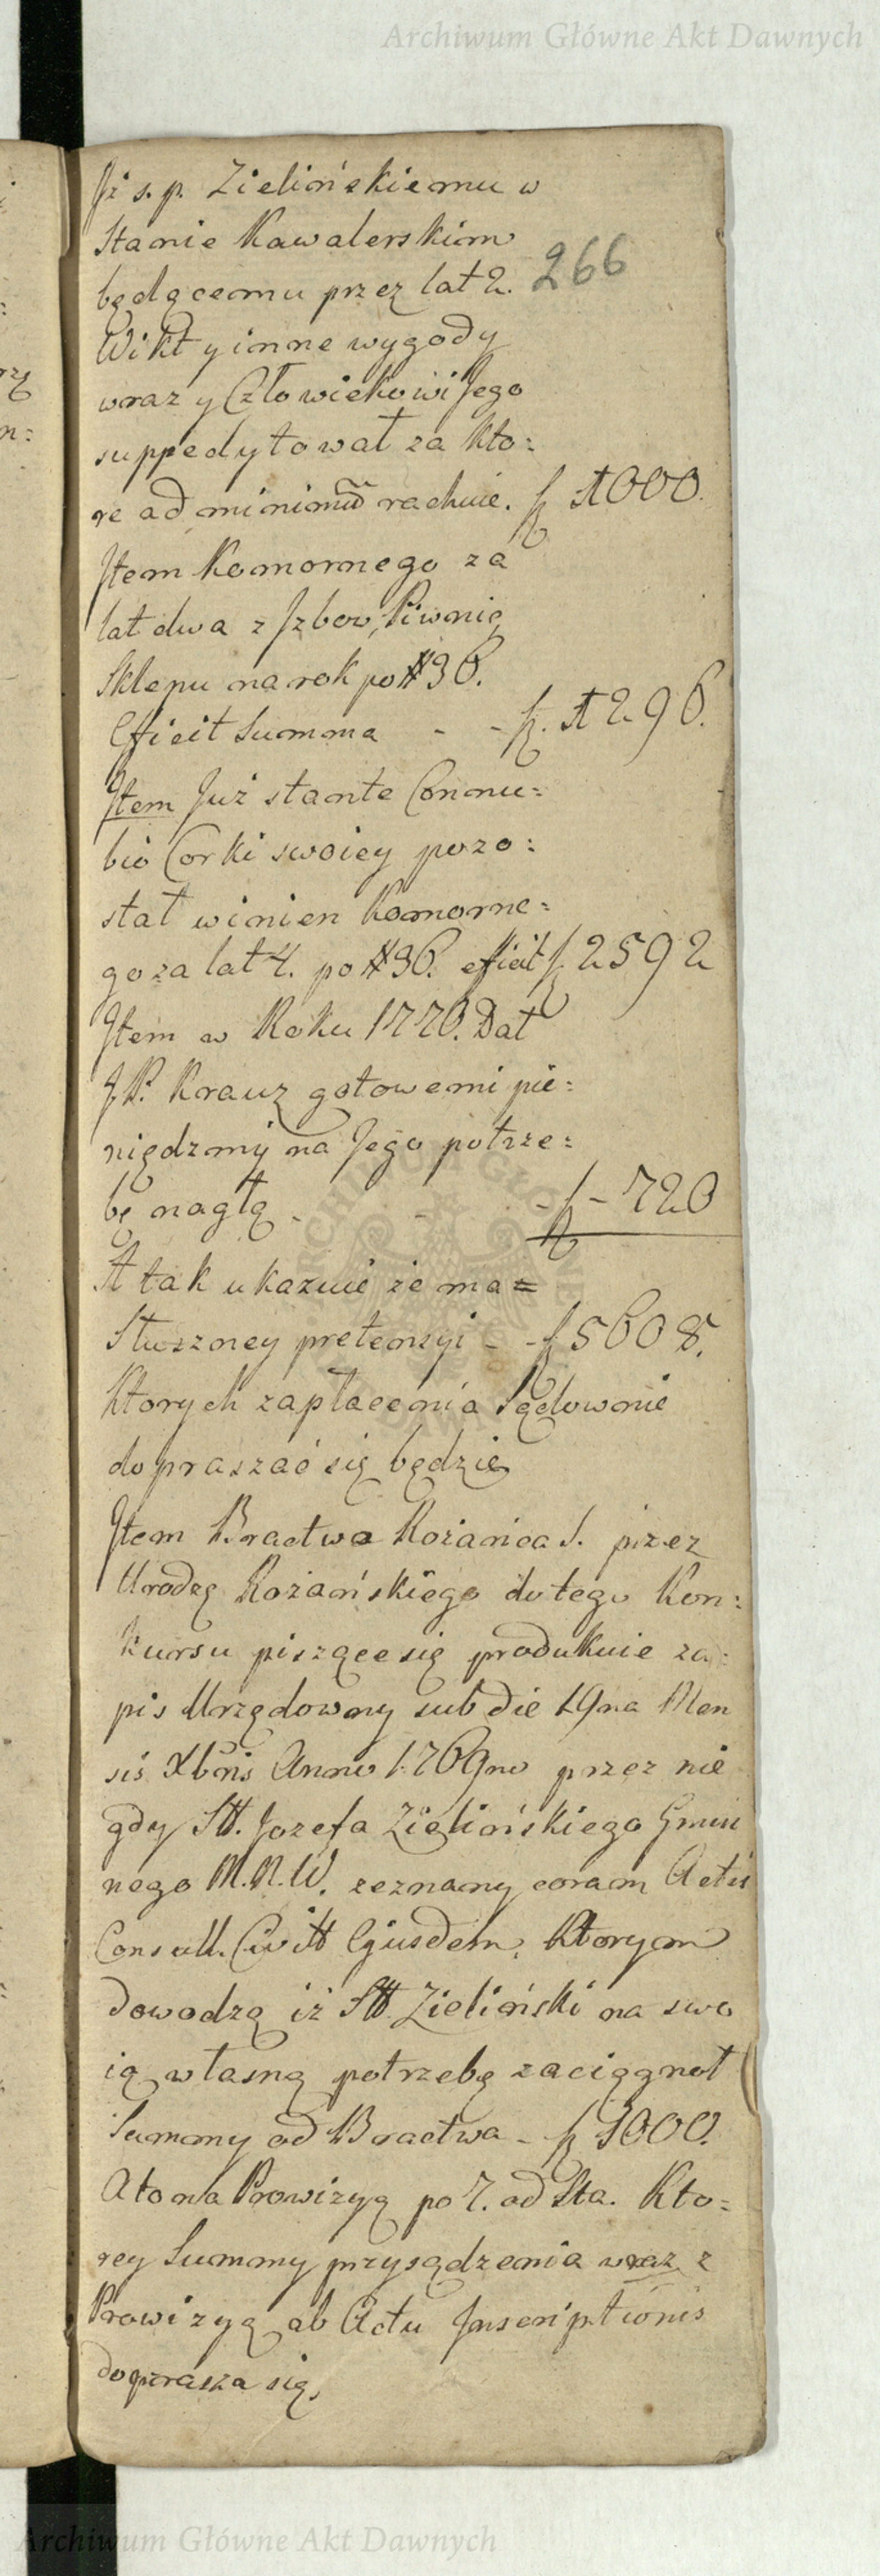 Archiwum Główne Akt Dawnych
Iż s. p. Zielińskiemu w
Stanie Kawalerskim
będącemu przez lat 2. 266
Wikt y inne wygody
wraz y Człowiekowi Jego
suppedytował za kto:
re ad minimũ rachuie. f 1000.
Item Komornego za
lat dwa z Izbow, Piwnic
Sklepu na rok po # 36.
Efficit Summa - - f. 1296.
Item Już stante Connu:
bio Corki swoiey pozo:
stał winien Komorne:
go za lat 4. po # 36. efficit f 2592
Item w Roku 1770. Dał
J P. Krauz gotowemi pie:
niędzmi na Jego potrze:
bę nagłą - - - f - 720
A tak ukazuie że ma =
Słuszney pretensyi - - f 5608.
Ktorych zapłacenia Sądownie
dopraszać się będzie
Item Bractwo Rożańca S. przez
Urodzę Rożańskiego do tego Kon:
kursu piszące się produkuie za:
pis Urzędowny sub die 19na Men
sis Xbris Anno 1769no przez nie
gdy Stt. Jozefa Zielińskiego Gmin
nego M. N. W. zeznany coram Actis
Consull. Civitt Ejusdem, Ktorym
dowodzą iż Stt Zieliński na swo
ią własną potrzebę zaciągnoł
Summy od Bractwa - f 3000.
A to na Prowizyą po 7. od Sta. Kto:
rey Summy przysądzenia wraz z
Prowizyą ab Actu Inscriptionis
doprasza się,
Archiwum Główne Akt Dawnych